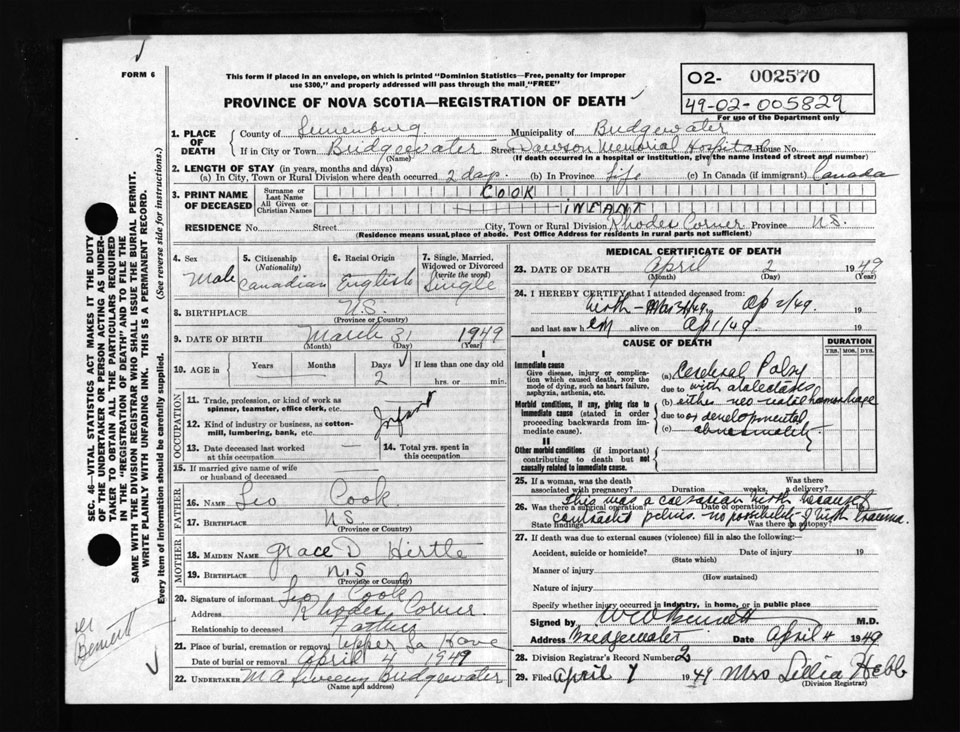 FORM 6
This form if placed in an envelope, on which is printed "Dominion Statistics—Free, penalty for improper
use $300," and properly addressed will pass through the mail, "FREE"
PROVINCE OF NOVA SCOTIA—REGISTRATION OF DEATH
02- 002570
49-02-005829
For use of the Department only
1. PLACE OF DEATH
County of Lunenburg Municipality of Bridgewater
If in City or Town Bridgewater Street Dawson Memorial Hospital House No.
(Name) (If death occurred in a hospital or institution, give the name instead of street and number)
2. LENGTH OF STAY (in years, months and days)
(a) In City, Town or Rural Division where death occurred 2 days. (b) In Province Life (c) In Canada (if immigrant) Canada
3. PRINT NAME OF DECEASED
Surname or Last Name COOK
All Given or Christian Names INFANT
RESIDENCE No. Street City, Town or Rural Division Rhodes Corner Province N.S.
(Residence means usual place of abode. Post Office Address for residents in rural parts not sufficient)
4. Sex Male
5. Citizenship (Nationality) Canadian
6. Racial Origin English
7. Single, Married, Widowed or Divorced (write the word) Single
8. BIRTHPLACE N.S.
(Province or Country)
9. DATE OF BIRTH March 31 1949
(Month) (Day) (Year)
10. AGE in Years Months Days 2 If less than one day old
hrs. or min.
OCCUPATION
11. Trade, profession, or kind of work as
spinner, teamster, office clerk, etc. Infant
12. Kind of industry or business, as cotton-
mill, lumbering, bank, etc.
13. Date deceased last worked
at this occupation
14. Total yrs. spent in
this occupation.
15. If married give name of wife
or husband of deceased
FATHER
16. NAME Leo Cook
17. BIRTHPLACE N.S.
(Province or Country)
MOTHER
18. MAIDEN NAME Grace D Hirtle
19. BIRTHPLACE N.S
(Province or Country)
20. Signature of informant Leo Cook
Address Rhodes Corner.
Relationship to deceased Father
21. Place of burial, cremation or removal Upper La Have
Date of burial or removal April 4 1949
22. UNDERTAKER M A Sweeny Bridgewater
(Name and address)
MEDICAL CERTIFICATE OF DEATH
23. DATE OF DEATH April 2 1949
(Month) (Day) (Year)
24. I HEREBY CERTIFY that I attended deceased from:
birth - Mar 31/49. Ap 2/49 19
and last saw h em alive on Ap 1/49. 19
CAUSE OF DEATH
DURATION
YRS. MOS. DYS.
I
Immediate cause
Give disease, injury or complica-
tion which caused death, not the
mode of dying, such as heart failure,
asphyxia, asthenia, etc.
(a) Cerebral Palsy
due to with atalectasis
Morbid conditions, if any, giving rise to
immediate cause (stated in order
proceeding backwards from im-
mediate cause).
(b) either neo-natal haemorrhage
due to or developmental
(c) abnormality
II
Other morbid conditions (if important)
contributing to death but not
causally related to immediate cause.
25. If a woman, was the death
associated with pregnancy? Duration weeks. Was there a delivery?
26. Was there a surgical operation? Date of operation
This was a caesarian birth because of
contracted pelvis. no possibility of birth trauma.
State findings Was there an autopsy?
27. If death was due to external causes (violence) fill in also the following:—
Accident, suicide or homicide? Date of injury 19
(State which)
Manner of injury
(How sustained)
Nature of injury
Specify whether injury occurred in industry, in home, or in public place
Signed by W W Bennett M.D.
Address Bridgewater Date April 4 1949
28. Division Registrar's Record Number 2
29. Filed April 7 1949 Mrs Lillia Hebb
(Division Registrar)
SEC. 46—VITAL STATISTICS ACT MAKES IT THE DUTY
OF THE UNDERTAKER OR PERSON ACTING AS UNDER-
TAKER TO OBTAIN ALL THE PARTICULARS REQUIRED
IN THE "REGISTRATION OF DEATH" AND TO FILE THE
SAME WITH THE DIVISION REGISTRAR WHO SHALL ISSUE THE BURIAL PERMIT.
WRITE PLAINLY WITH UNFADING INK. THIS IS A PERMANENT RECORD.
Every item of information should be carefully supplied. (See reverse side for instructions.)
Bennett